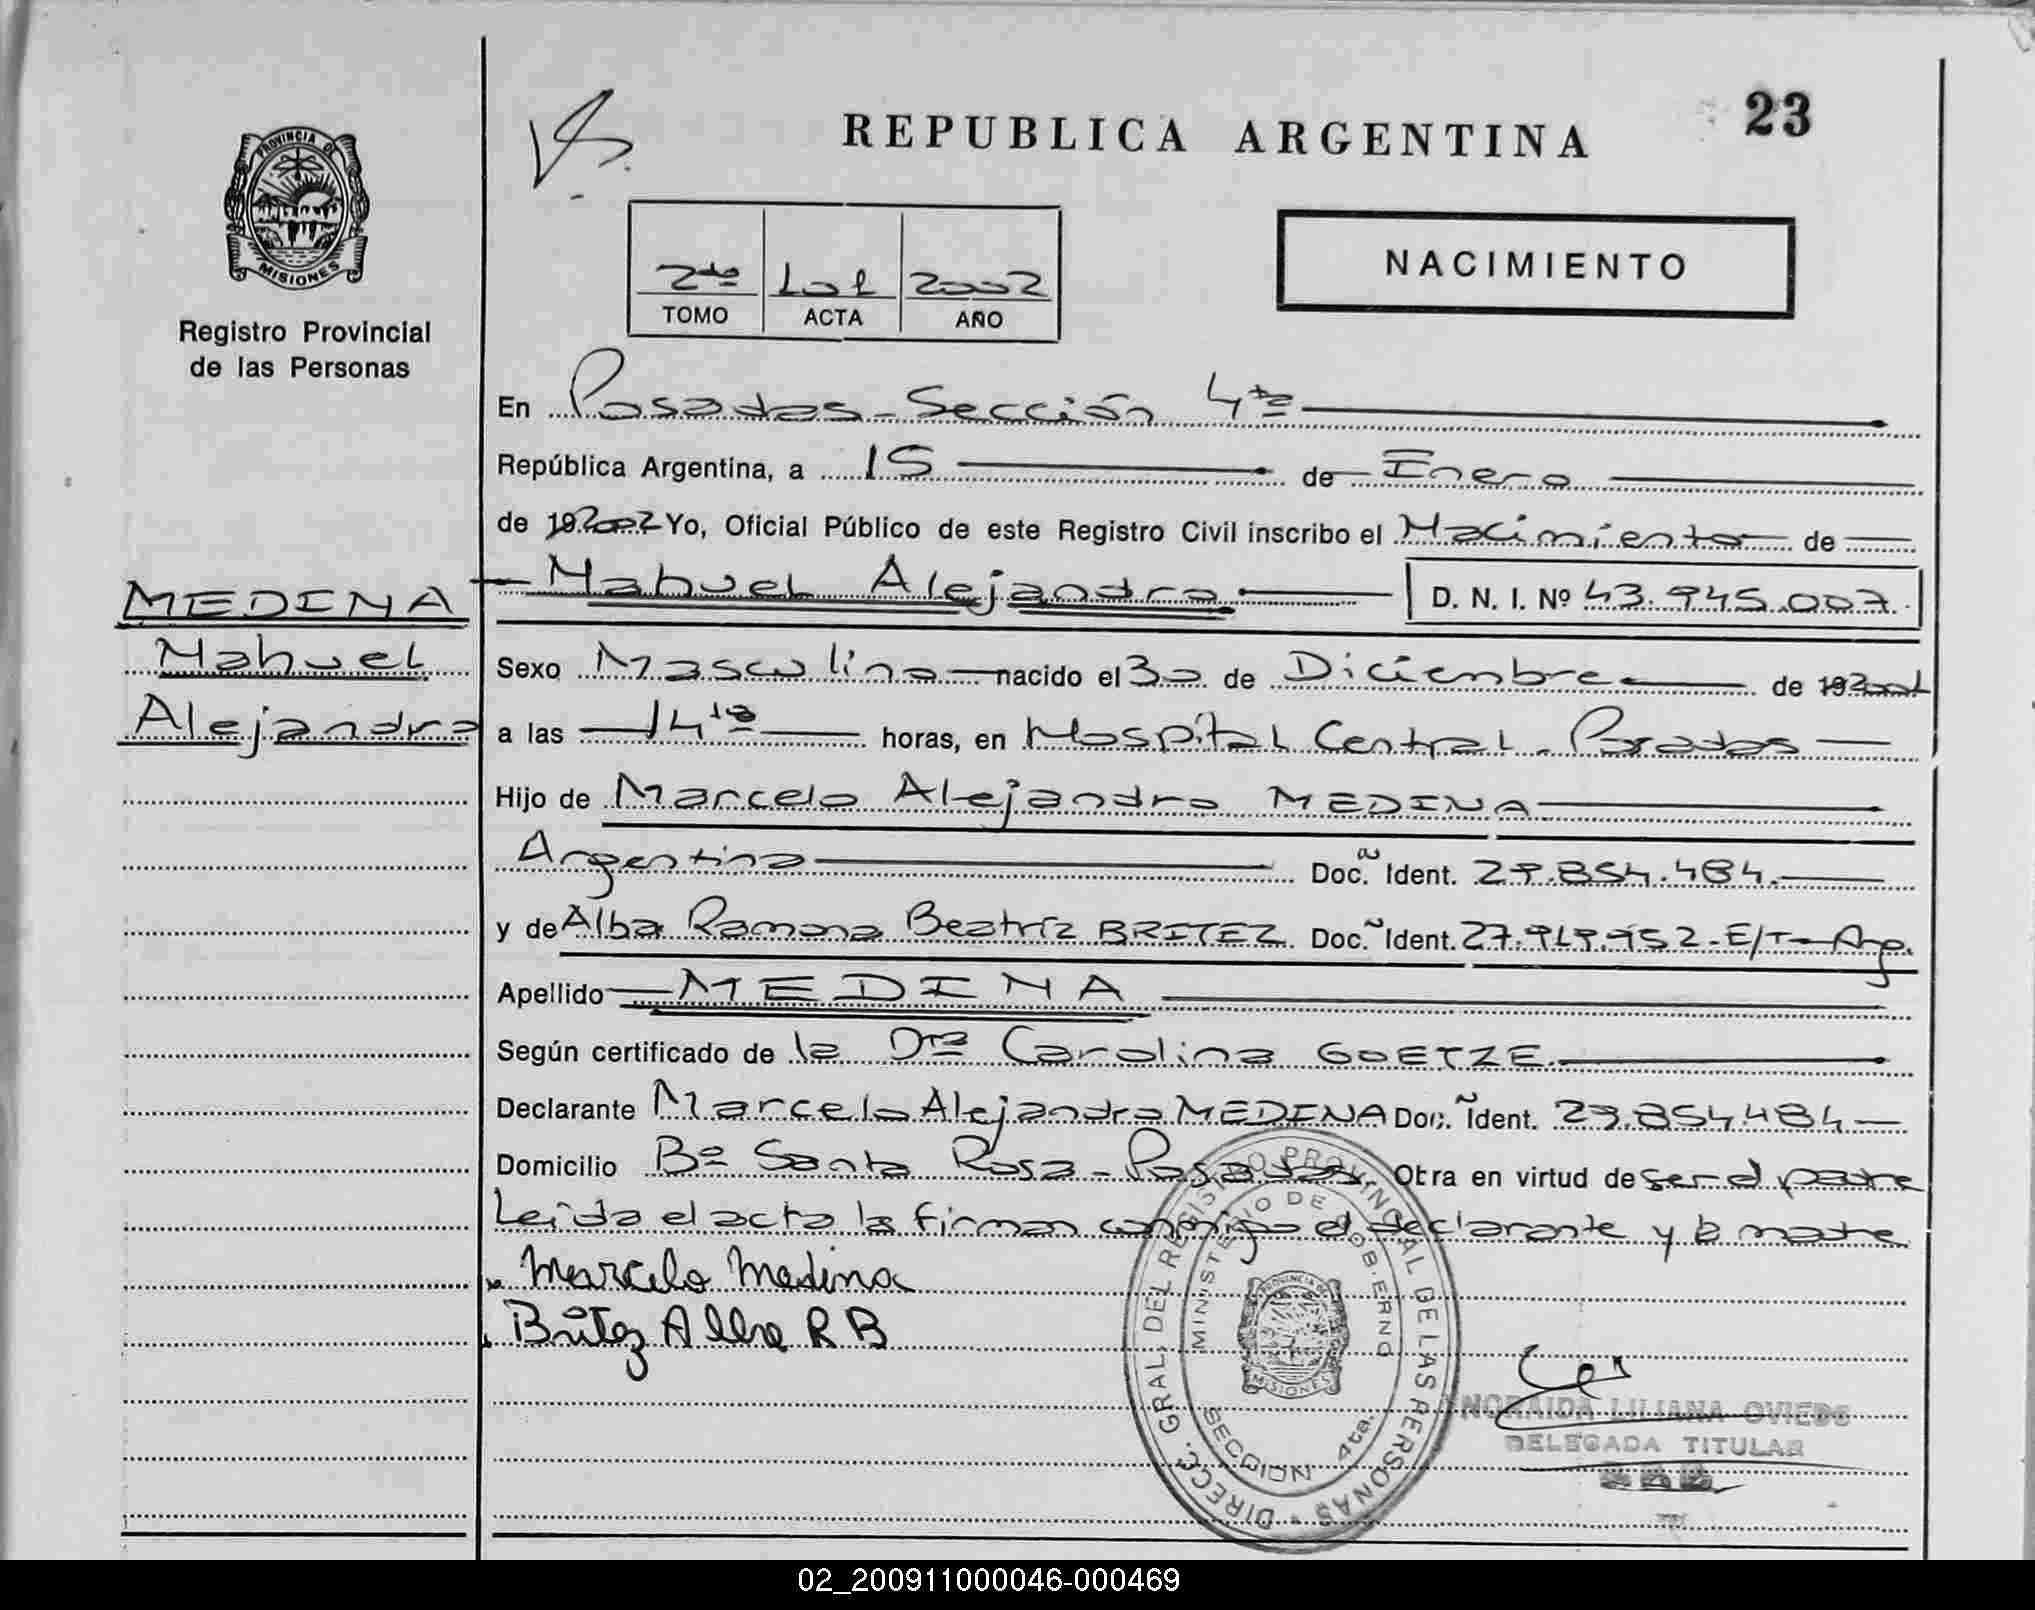 PROVINCIA DE
MISIONES
Registro Provincial
de las Personas
MEDINA
Nahuel
Alejandro
23
REPUBLICA ARGENTINA
2do 101 2002
TOMO ACTA AÑO
NACIMIENTO
En Posadas - Sección 4ta
República Argentina, a 15 de Enero
de 19 2002 Yo, Oficial Público de este Registro Civil inscribo el Nacimiento de
Nahuel Alejandro D. N. I. Nº 43.945.007.
Sexo Masculino nacido el 30 de Diciembre de 19 2001
a las 14 horas, en Hospital Central - Posadas
Hijo de Marcelo Alejandro MEDINA
Argentina Doc. Ident. 29.854.484.
y de Alba Ramona Beatríz BRITEZ Doc. Ident. 27.919.952 - E/T - Arg.
Apellido MEDINA
Según certificado de la Dra Carolina GOETZE
Declarante Marcelo Alejandro MEDINA Doc. Ident. 29.854.484
Domicilio Bº Santa Rosa - Posadas. Otra en virtud de ser el padre
Leída el acta la firman conmigo el declarante y la madre
Marcelo Medina
Britez Alba R B
DIRECC. GRAL. DEL REGISTRO PROVINCIAL DE LAS PERSONAS
MINISTERIO DE GOBIERNO
PROVINCIA DE
MISIONES
SECCION 4ta.
NORAIDA LILIANA OVIEDO
DELEGADA TITULAR
02_200911000046-000469